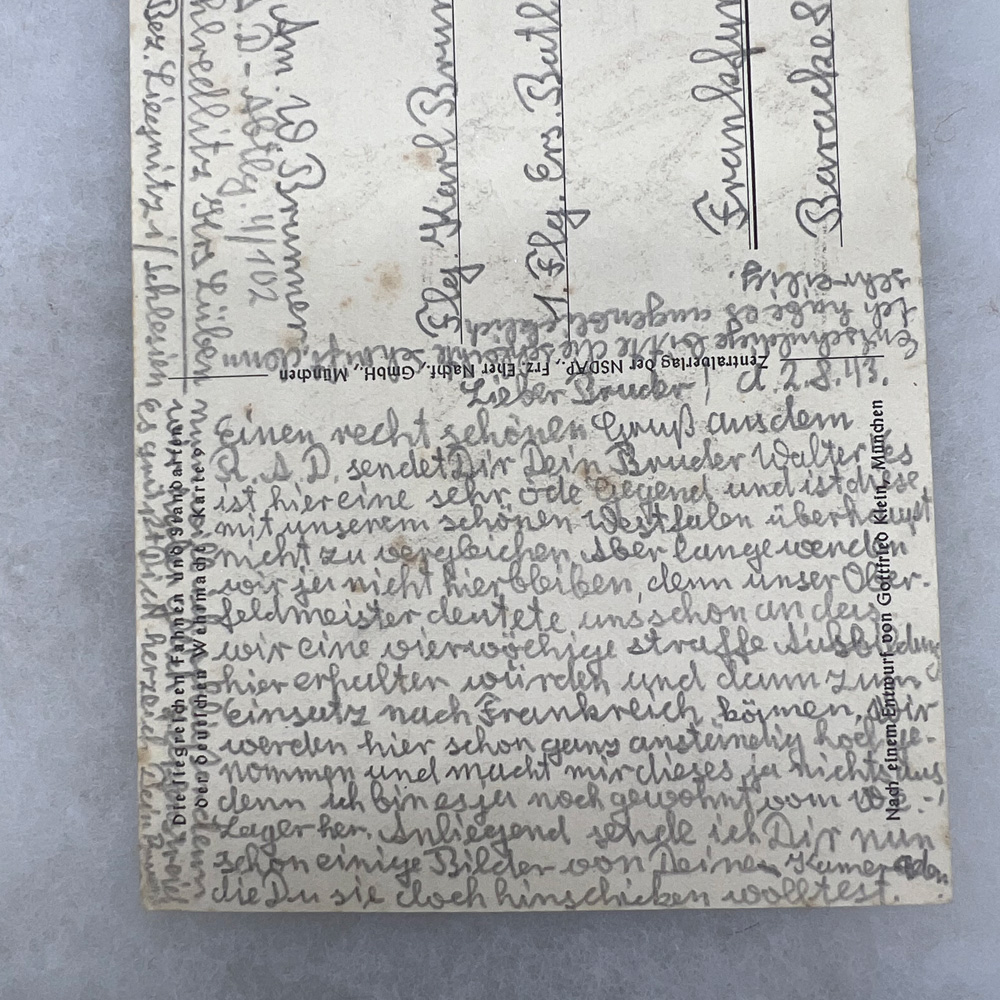 Lieber Bruder! d. 2.8.43.
Einen recht schönen Gruß aus dem
R.A.D. sendet Dir Dein Bruder Walter. Es
ist hier eine sehr öde Gegend und ist diese
mit unserem schönen Westfalen überhaupt
nicht zu vergleichen. Aber lange werden
wir ja nicht hierbleiben, denn unser Ober-
feldmeister deutete uns schon an das
wir eine vierwöchige straffe Ausbildung
hier erhalten würden und dann zum
Einsatz nach Frankreich kämen. Wir
werden hier schon ganz anständig hochge-
nommen und macht mir dieses ja nichts aus
denn ich bin es ja noch gewohnt vom We.-
Lager her. Anliegend sende ich Dir nun
schon einige Bilder von Deinen Kameraden
die Du sie doch hinschicken wolltest.
Entschuldige bitte die schlechte Schrift, denn
ich habe es augenblicklich
sehr eilig.
Zentralverlag der NSDAP., Frz. Eher Nachf., GmbH., München
Die siegreichen Fahnen und Standarten
der Deutschen Wehrmacht Karte
Nach einem Entwurf von Gottfried Klein, München
Am. W. Brunner
Abtlg. 4/102
Lüben
Bez. Liegnitz / Schlesien
Flg. Karl Brun
Flg. Ers. Batl
Frankfur
Baracke 8
es grüßt Dich herzlich Dein Bruder